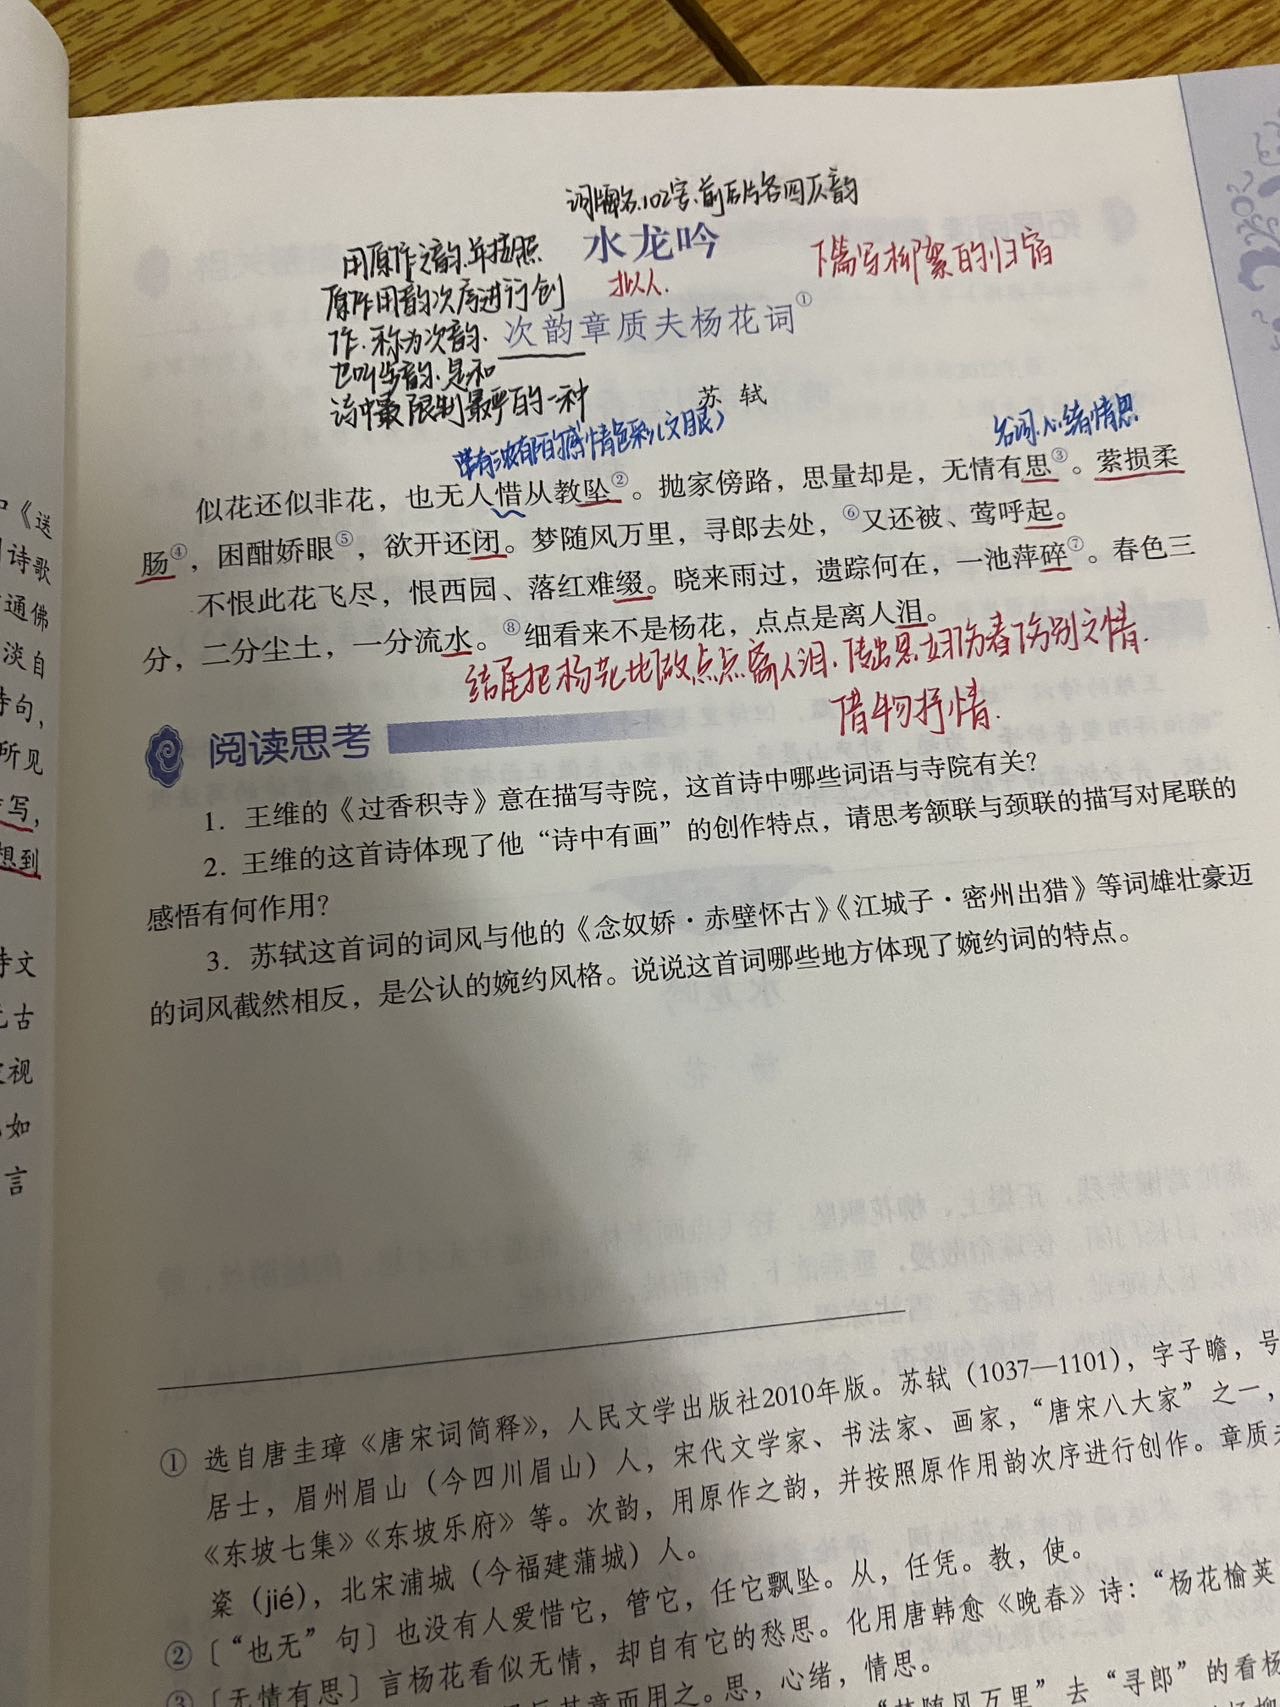 词牌名.102字.前后片各四仄韵
水龙吟
用原作之韵.并按照
原作用韵次序进行创
作.称为次韵.
也叫步韵.是和
诗中最限制最严的一种
拟人.
下篇写柳絮的归宿
次韵章质夫杨花词①
苏 轼
带有浓郁的感情色彩(文眼)
名词.心绪情思
似花还似非花，也无人惜从教坠②。抛家傍路，思量却是，无情有思③。萦损柔
肠④，困酣娇眼⑤，欲开还闭。梦随风万里，寻郎去处，⑥又还被、莺呼起。
不恨此花飞尽，恨西园、落红难缀。晓来雨过，遗踪何在，一池萍碎⑦。春色三
分，二分尘土，一分流水。⑧细看来不是杨花，点点是离人泪。
结尾把杨花比做点点离人泪.传出思妇伤春伤别之情.
借物抒情.
阅读思考
1. 王维的《过香积寺》意在描写寺院，这首诗中哪些词语与寺院有关？
2. 王维的这首诗体现了他“诗中有画”的创作特点，请思考颔联与颈联的描写对尾联的
感悟有何作用？
3. 苏轼这首词的词风与他的《念奴娇·赤壁怀古》《江城子·密州出猎》等词雄壮豪迈
的词风截然相反，是公认的婉约风格。说说这首词哪些地方体现了婉约词的特点。
① 选自唐圭璋《唐宋词简释》，人民文学出版社2010年版。苏轼（1037—1101），字子瞻，号
居士，眉州眉山（今四川眉山）人，宋代文学家、书法家、画家，“唐宋八大家”之一，
《东坡七集》《东坡乐府》等。次韵，用原作之韵，并按照原作用韵次序进行创作。章质
楶（jié），北宋浦城（今福建蒲城）人。
② 〔“也无”句〕也没有人爱惜它，管它，任它飘坠。从，任凭。教，使。
③ 〔无情有思〕言杨花看似无情，却自有它的愁思。化用唐韩愈《晚春》诗：“杨花榆荚
而用之。思，心绪，情思。
“梦随风万里”去“寻郎”的看杨
《送
诗歌
通佛
淡自
诗句，
所见
写，
想到
诗文
古
视
如
言